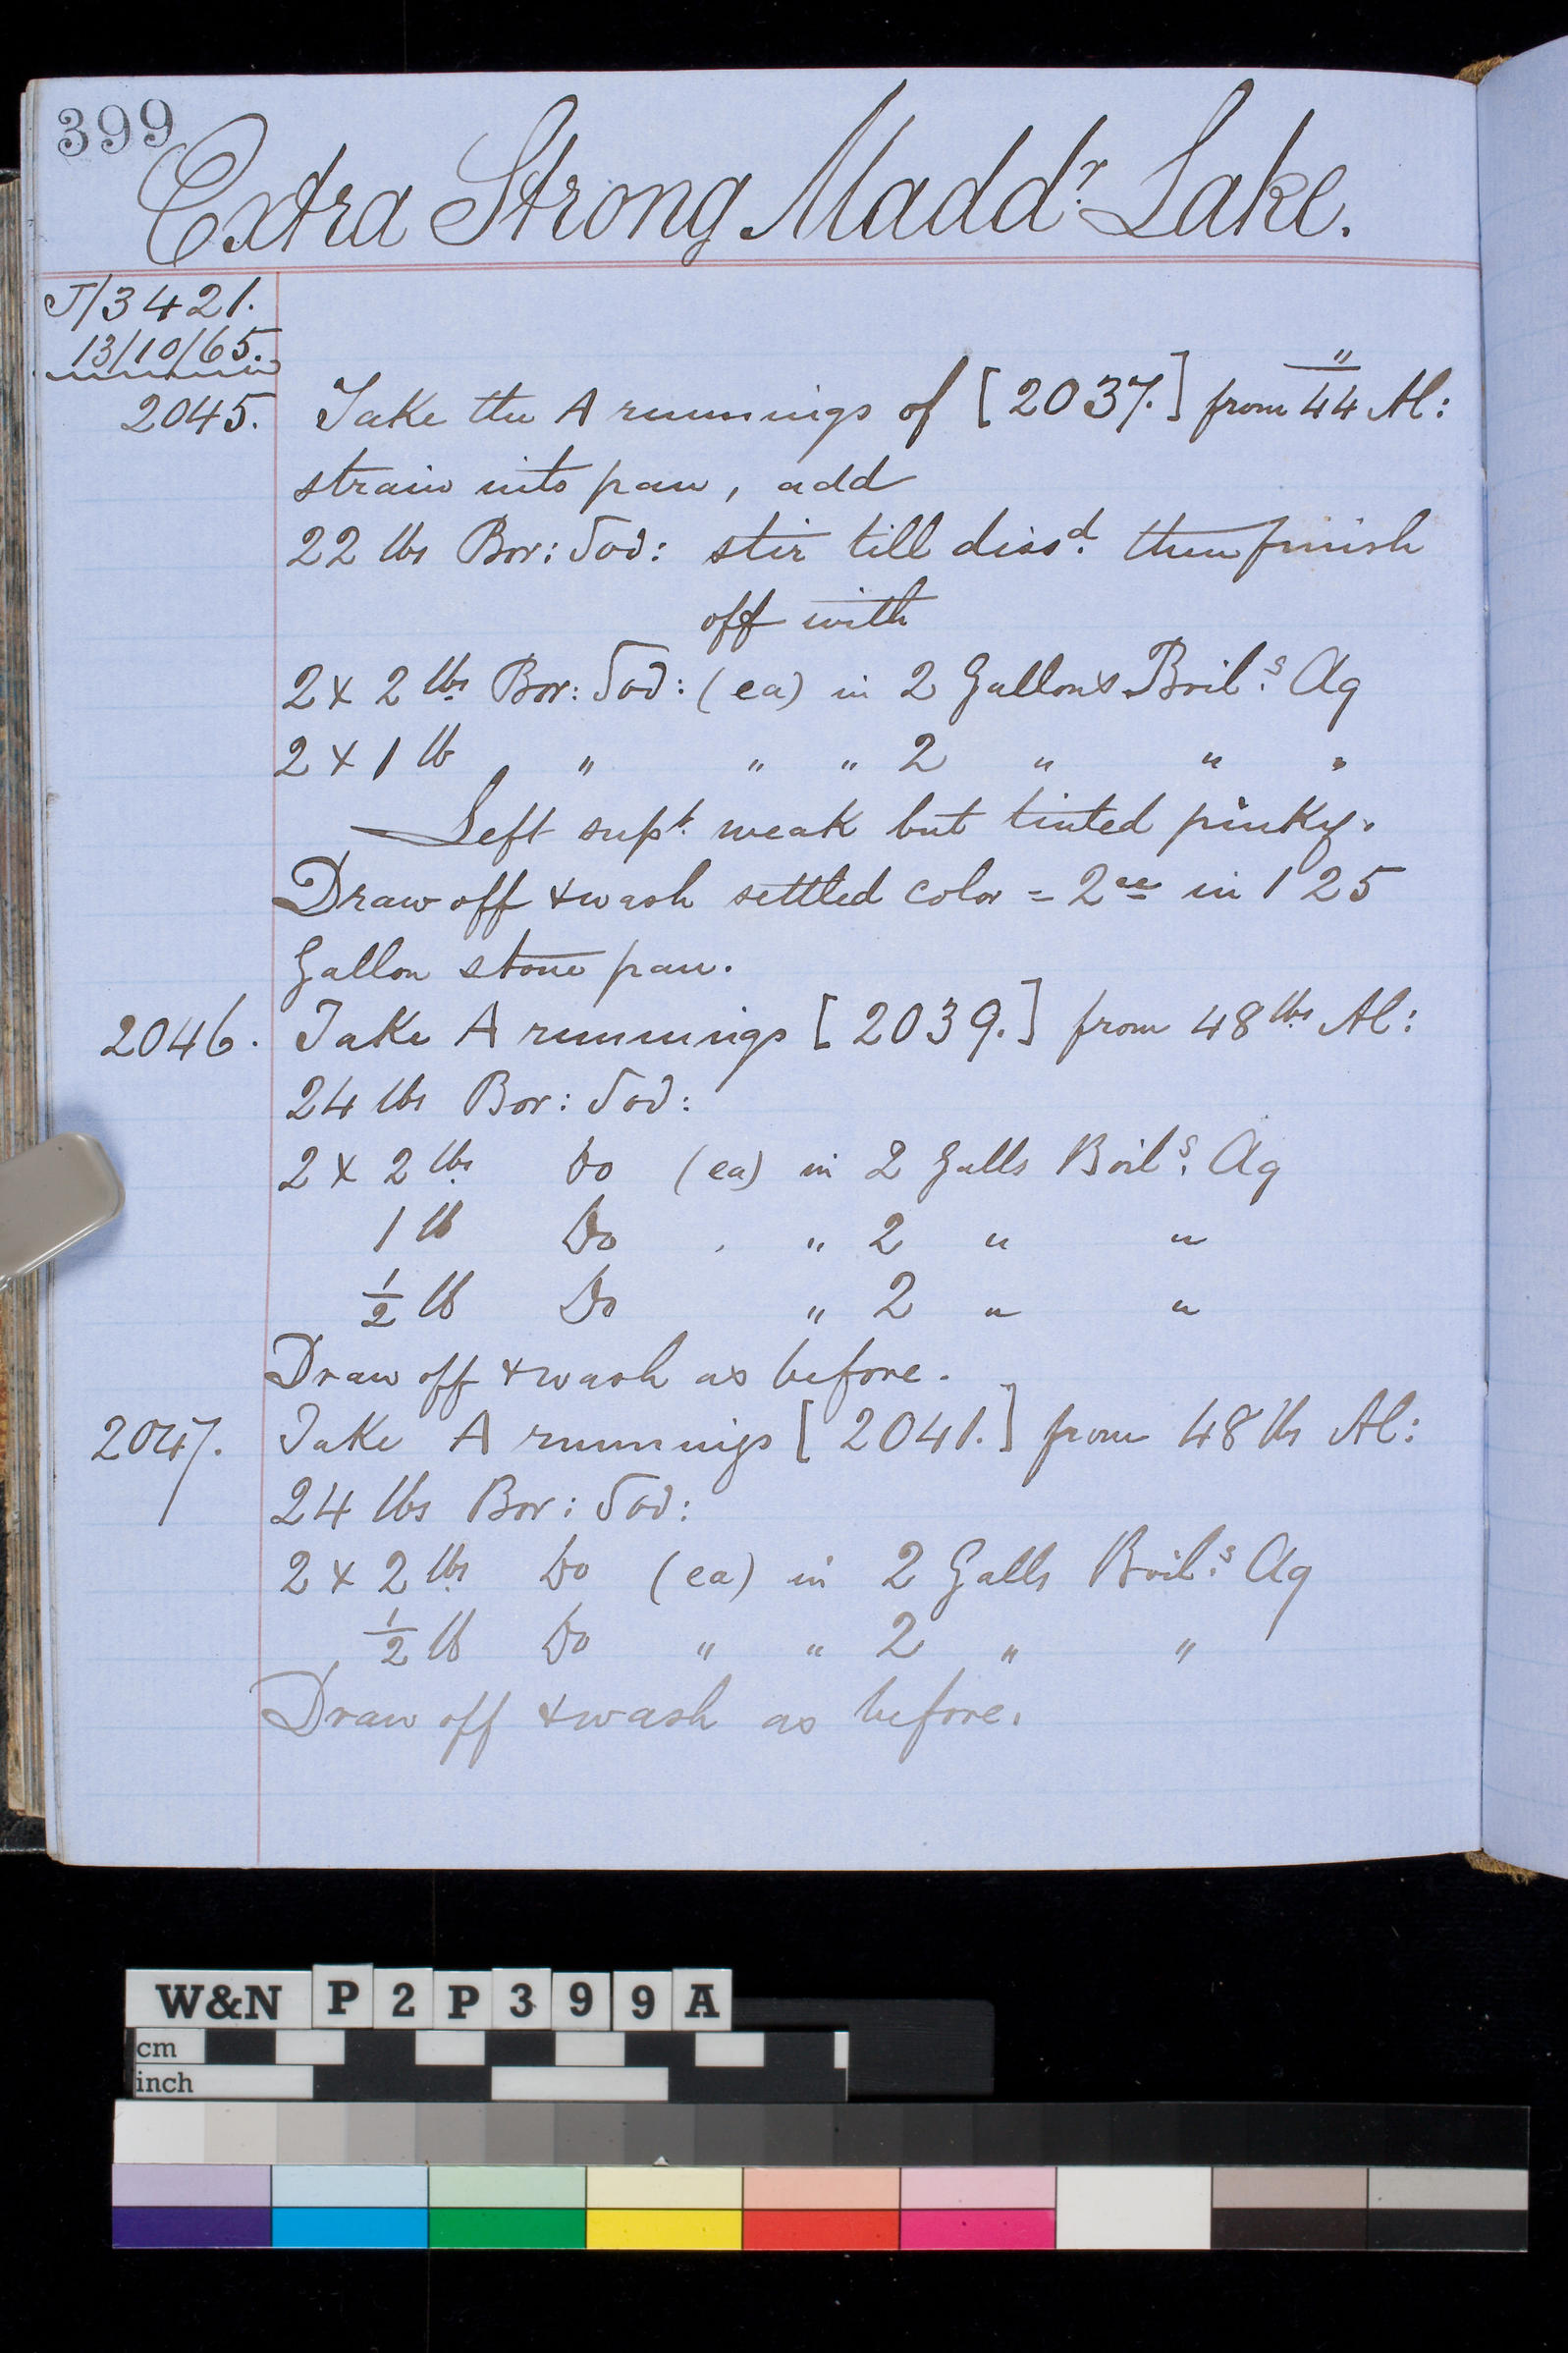 399
Extra Strong Madd.r Lake.
J/3421.
13/10/65.
2045. Take the A runnings of [2037.] from 44 Al:
strain into pan, add
22 lbs Bor: Sod: stir till diss.d then finish
off with
2 x 2 lbs Bor: Sod: (ea) in 2 Gallons Boil.g Aq
2 x 1 lb " " " 2 " " "
Left sup.t weak but tinted pinky.
Draw off & wash settled color = 2 in 125
Gallon stone pan.
2046. Take A runnings [2039.] from 48 lbs Al:
24 lbs Bor: Sod:
2 x 2 lbs Do (ea) in 2 Galls Boil.g Aq
1 lb Do " 2 " "
1/2 lb Do " 2 " "
Draw off & wash as before.
2047. Take A runnings [2041.] from 48 lbs Al:
24 lbs Bor: Sod:
2 x 2 lbs Do (ea) in 2 Galls Boil.g Aq
1/2 lb Do " " 2 " "
Draw off & wash as before.
W&N P2P399A
cm
inch